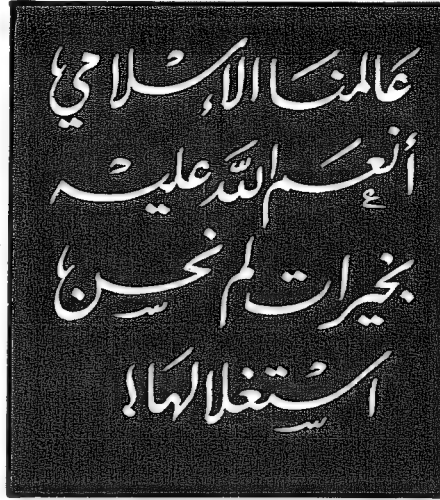 عالمنا الإسلامي
أنعم الله عليه
بخيرات لم نحسن
استغلالها!